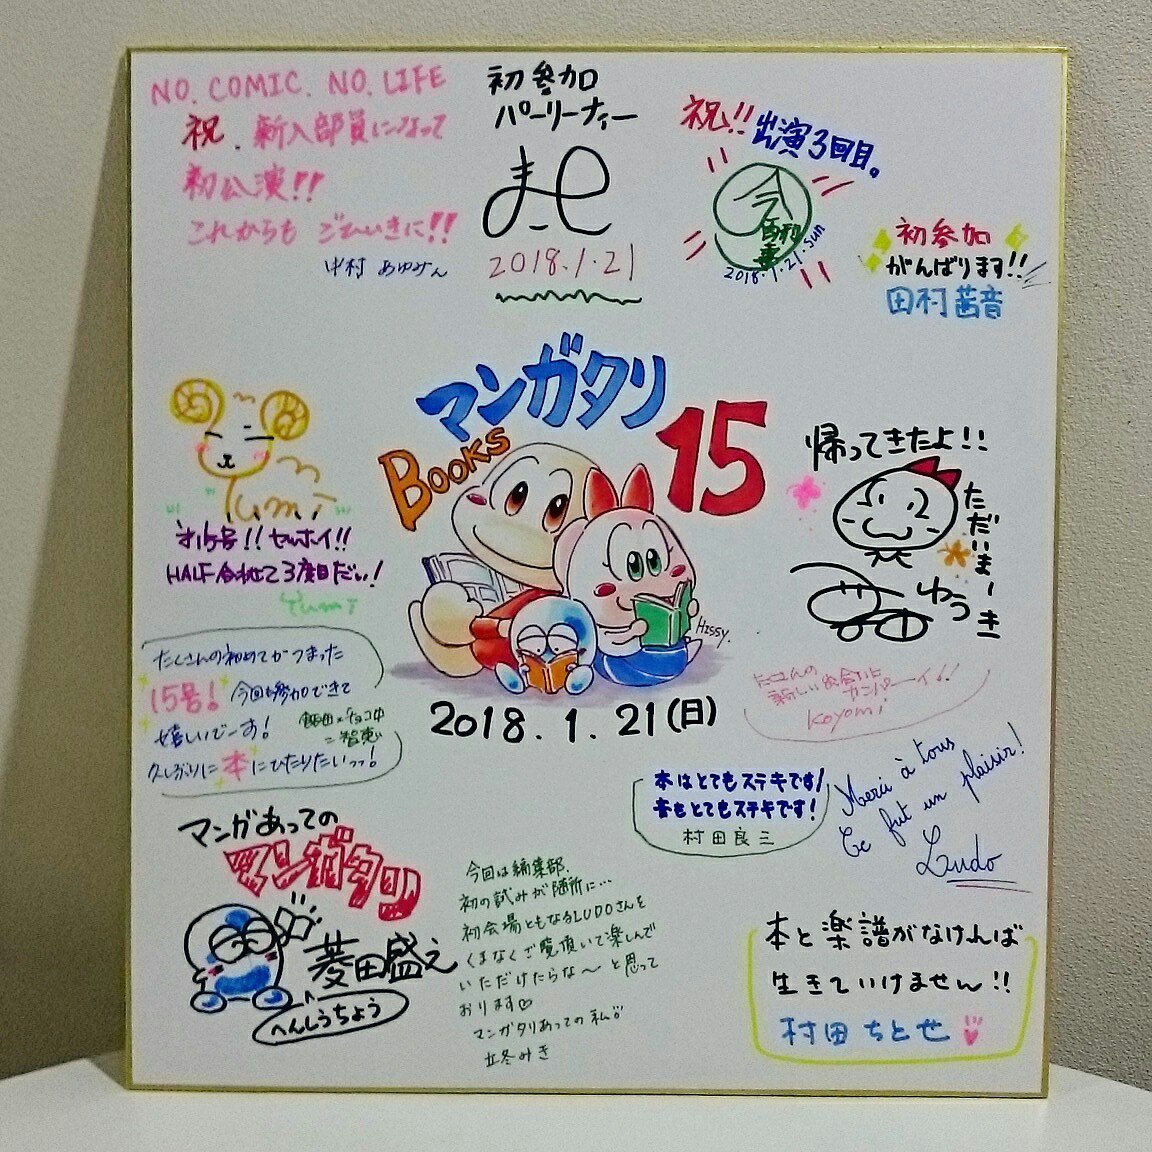 NO. COMIC. NO. LIFE
祝. 新入部員になって
初公演!!
これからも ごひいきに!!
中村 あゆみん
初参加
パーリーナィー
2018.1.21
祝!!
出演3回目。
2018.1.21.sun
初参加
がんばります!!
田村茜音
マンガタリ
BOOKS
15
HISSY.
2018.1.21(日)
Yumi
才15号!! セルホイ!!
HALF合わせて3度目だい!
Yumi
帰ってきたよ!!
ただいまー
ゆうき
たくさんの初めてがつまった
15号! 今回も参加できて
嬉しいでーす!
久しぶりに本にひたりたいっっ!
たくさんの
新しい出会いに
カンパーイ!!
Koyomi
本はとてもステキです!
本もとてもステキです!
村田良三
Merci à tous
Ce fut un plaisir!
Ludo
マンガあっての
マンガタリ
菱田盛え
へんしうちょう
今回は編集部、
初の試みが随所に…
初会場ともなるLUDOさんを
くまなくご覧頂いて楽しんで
いただけたらな〜と思って
おります♡
マンガタリあっての私。
立冬みき
本と楽譜がなければ
生きていけません!!
村田ちとせ